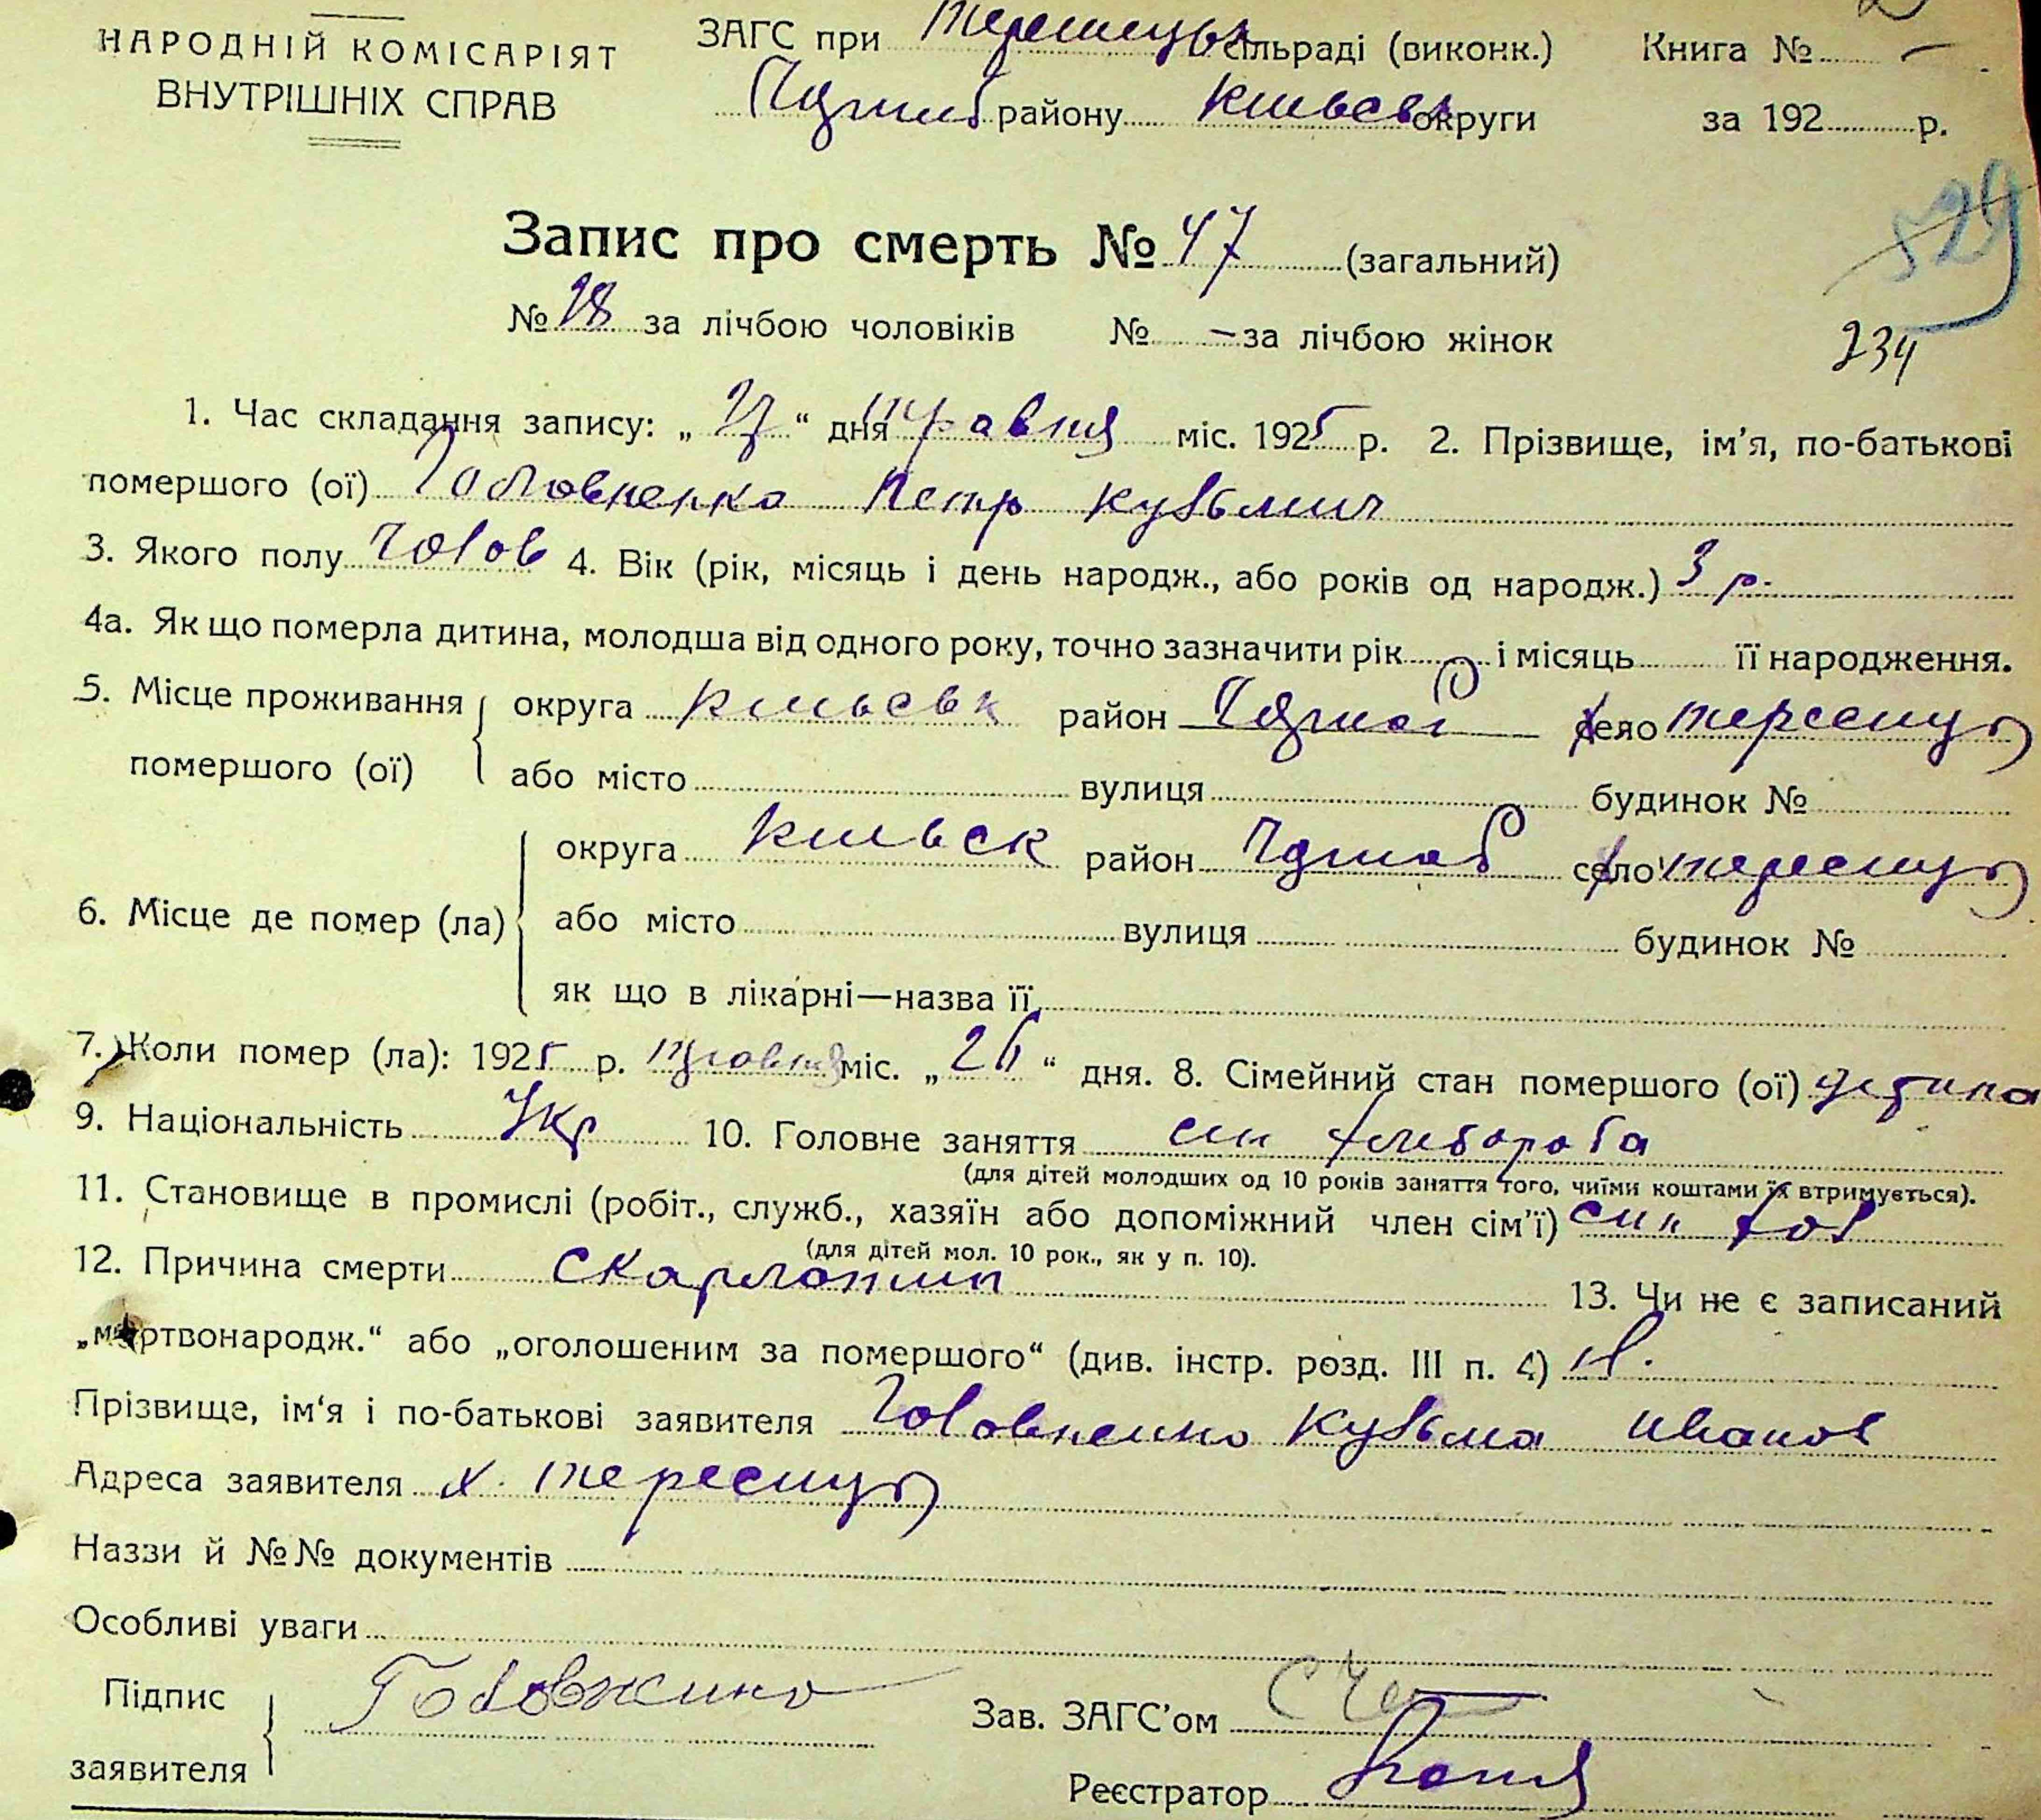 НАРОДНІЙ КОМІСАРІЯТ
ВНУТРІШНІХ СПРАВ
ЗАГС при сільраді (виконк.) Книга № —
району Київськ округи за 192 р.
529
Запис про смерть № 47 (загальний)
№ 28 за лічбою чоловіків № — за лічбою жінок
234
1. Час складання запису: „27“ дня травня міс. 1925 р. 2. Прізвище, ім’я, по-батькові
помершого (ої) Головненко Петр Кузьмич
3. Якого полу Чолов 4. Вік (рік, місяць і день народж., або років од народж.) 3 р.
4а. Як що померла дитина, молодша від одного року, точно зазначити рік і місяць її народження.
5. Місце проживання помершого (ої) округа Київськ район село
або місто вулиця будинок №
6. Місце де помер (ла) округа Київськ район село
або місто вулиця будинок №
як що в лікарні—назва її
7. Коли помер (ла): 1925 р. травня міс. „26“ дня. 8. Сімейний стан помершого (ої) дитина
9. Національність Укр 10. Головне заняття син хлібороба
(для дітей молодших од 10 років заняття того, чиїми коштами їх втримується).
11. Становище в промислі (робіт., служб., хазяїн або допоміжний член сім’ї) син хоз
(для дітей мол. 10 рок., як у п. 10).
12. Причина смерти 13. Чи не є записаний
„мертвонародж.“ або „оголошеним за помершого“ (див. інстр. розд. III п. 4)
Прізвище, ім‘я і по-батькові заявителя Головненко Кузьма Иванов
Адреса заявителя х.
Наззи й №№ документів
Особливі уваги
Підпис заявителя Головненко
Зав. ЗАГС’ом
Реєстратор